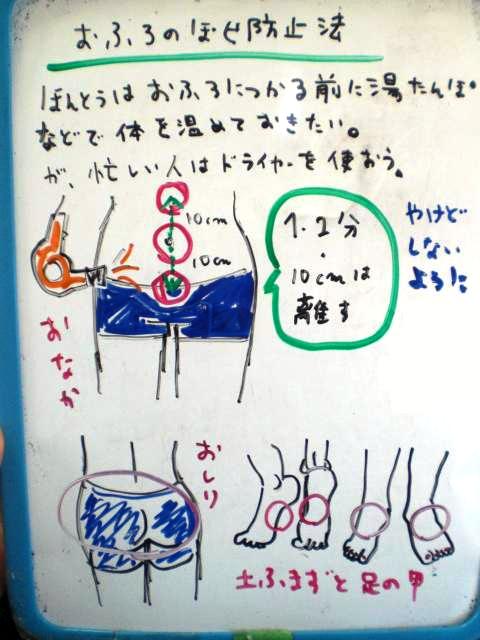 おふろのぼせ防止法
ほんとうは おふろにつかる前に湯たんぽ
などで 体を温めておきたい。
が、忙しい人は ドライヤーを 使おう。
10cm
10cm
1.2分
・
10cmは
離す
やけど
しない
ように
おなか
おしり
土ふまずと足の甲